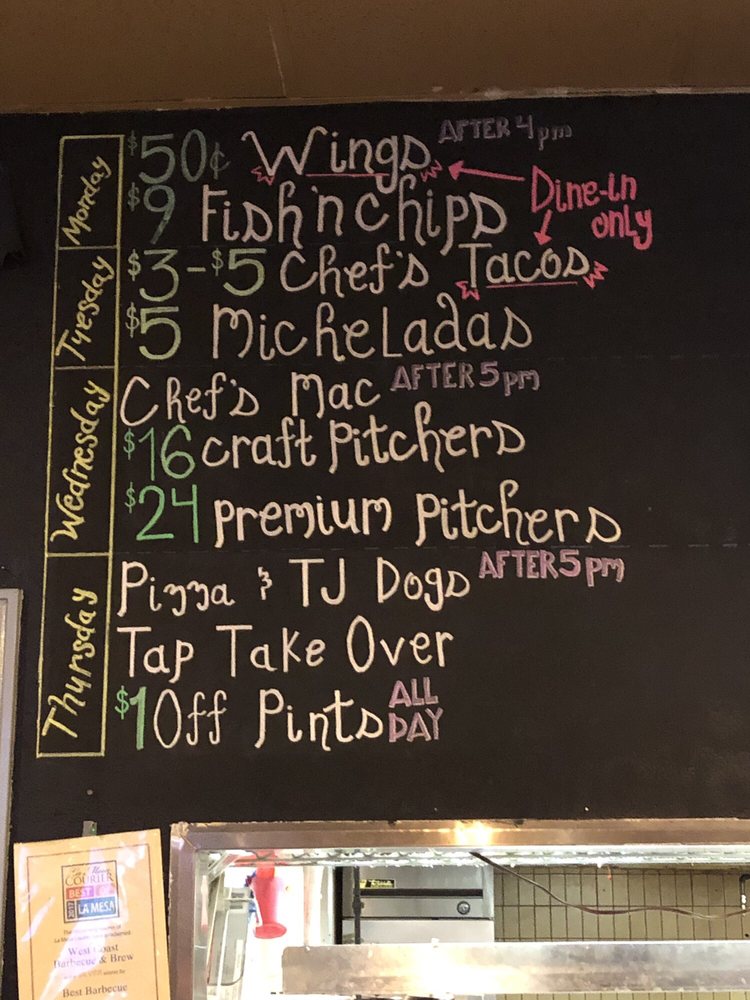 Monday
$50¢ Wings AFTER 4pm
$9 Fish'n chips
Dine-in
only
Tuesday
$3-$5 Chef's Tacos
$5 Micheladas
Wednesday
Chef's Mac AFTER 5pm
$16 craft Pitchers
$24 premium Pitchers
Thursday
Pizza & TJ Dogs AFTER 5pm
Tap Take Over
$1 Off Pints ALL DAY
COURIER
BEST
2017 LA MESA
West Coast
Barbecue & Brew
Best Barbecue